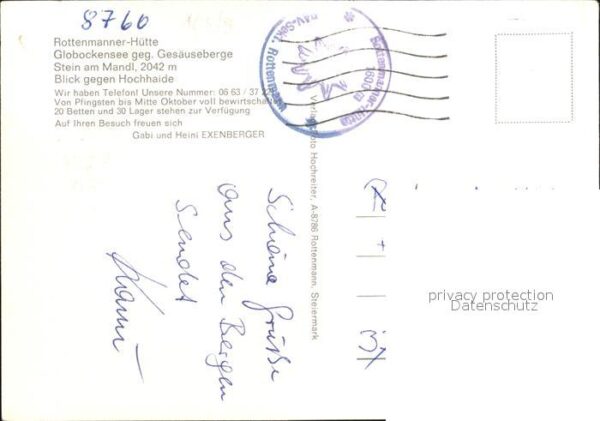 8760
Rottenmanner-Hütte
Globockensee geg. Gesäuseberge
Stein am Mandl, 2042 m
Blick gegen Hochhaide
Wir haben Telefon! Unsere Nummer: 06 63 / 37 2
Von Pfingsten bis Mitte Oktober voll bewirtschaf
20 Betten und 30 Lager stehen zur Verfügung
Auf Ihren Besuch freuen sich
Gabi und Heini EXENBERGER
Rottenmanner-Hütte
ÖAV-Sekt. Rottenmann
Verlag Foto Hochreiter, A-8786 Rottenmann, Steiermark
Schöne Grüße
aus den Bergen
sendet
privacy protection
Datenschutz